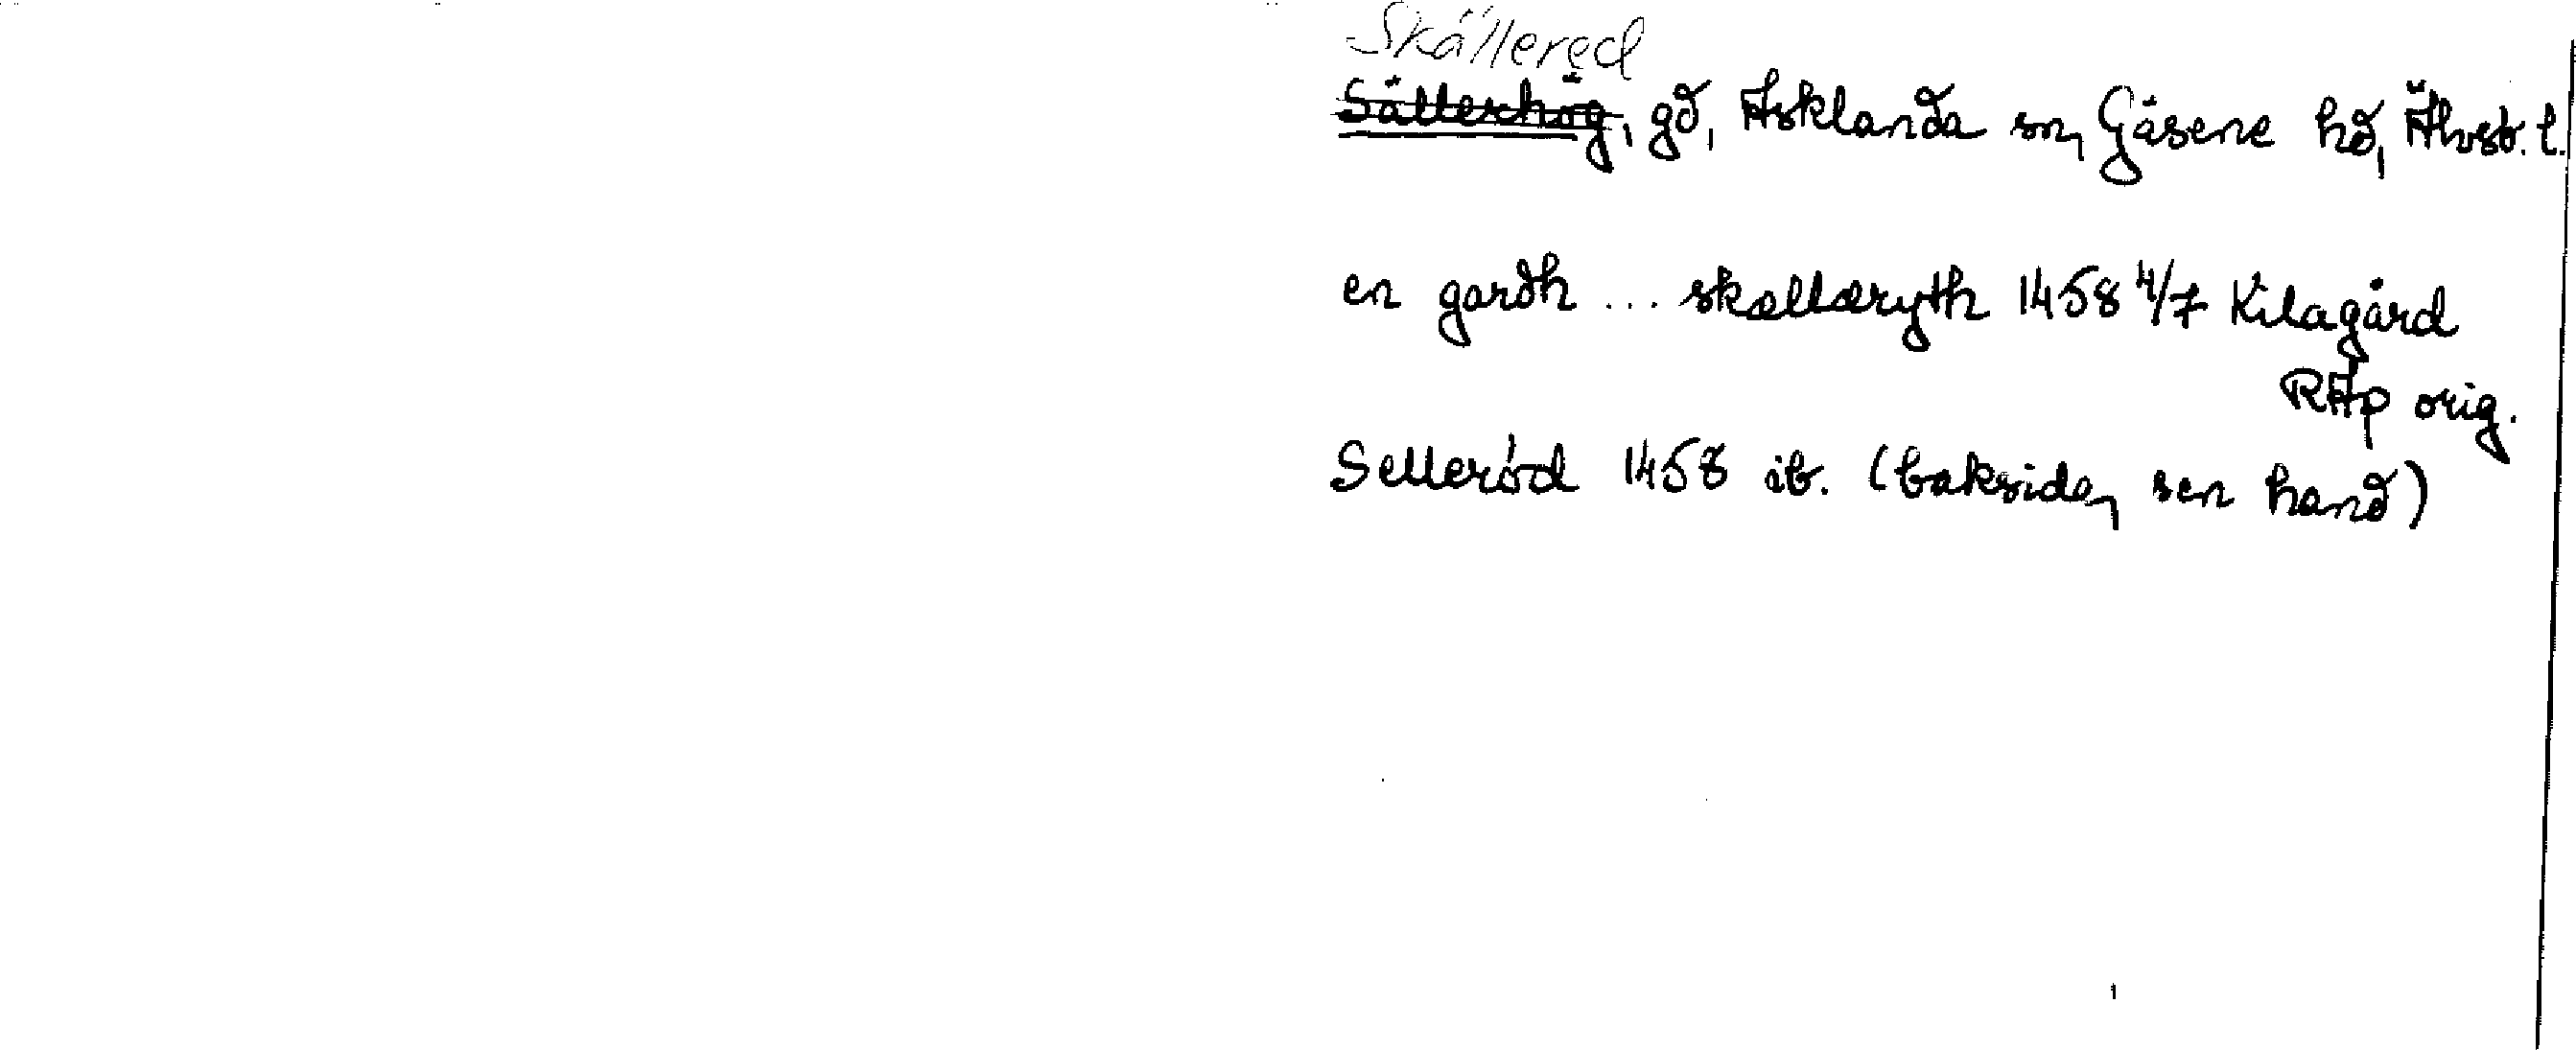 Skällered
Sällerhög, gd, Asklanda sn, Gäsene hd, Älvsb. l.
en gardh ... skællæryth 1458 4/7 Kilagård
RAp orig.
Selleröd 1458 ib. (baksida, sen hand)